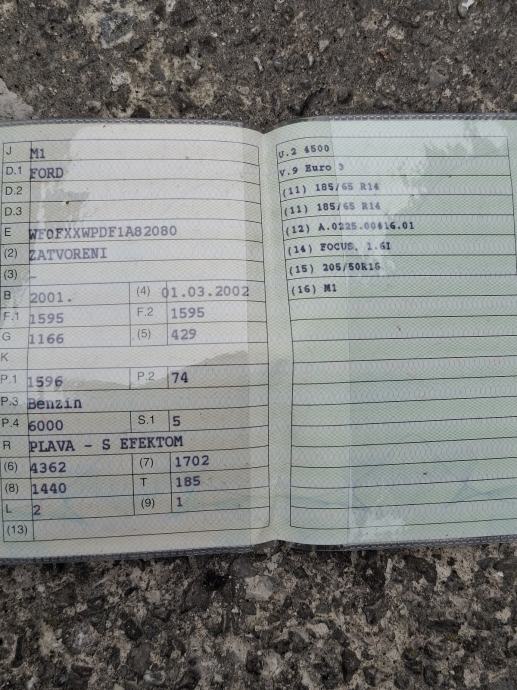 J M1
D.1 FORD
D.2
D.3
E WF0FXXWPDF1A82080
(2) ZATVORENI
(3) -
B 2001. (4) 01.03.2002
F.1 1595 F.2 1595
G 1166 (5) 429
K
P.1 1596 P.2 74
P.3 Benzin
P.4 6000 S.1 5
R PLAVA - S EFEKTOM
(6) 4362 (7) 1702
(8) 1440 T 185
L 2 (9) 1
(13)
U.2 4500
V.9 Euro 3
(11) 185/65 R14
(11) 185/65 R14
(12) A.0225.00416.01
(14) FOCUS, 1.6I
(15) 205/50R16
(16) M1